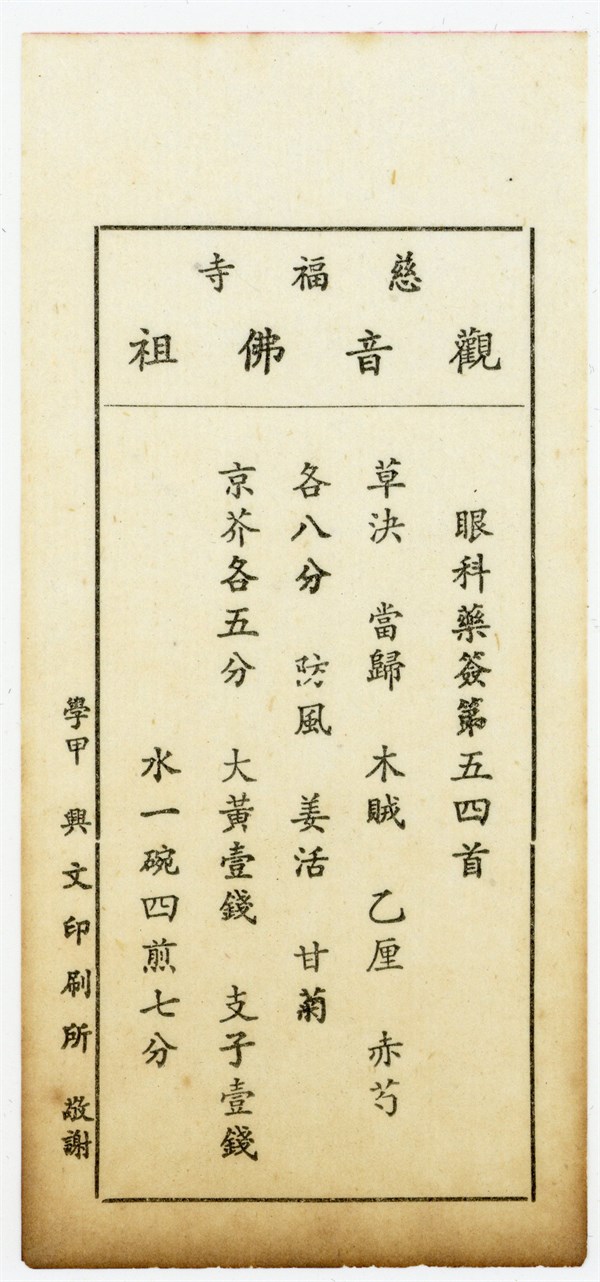 慈福寺
觀音佛祖
眼科藥簽第五四首
草決 當歸 木賊 乙厘 赤芍
各八分 防風 姜活 甘菊
京芥各五分 大黃壹錢 支子壹錢
水一碗四煎七分
學甲 興文印刷所 敬謝